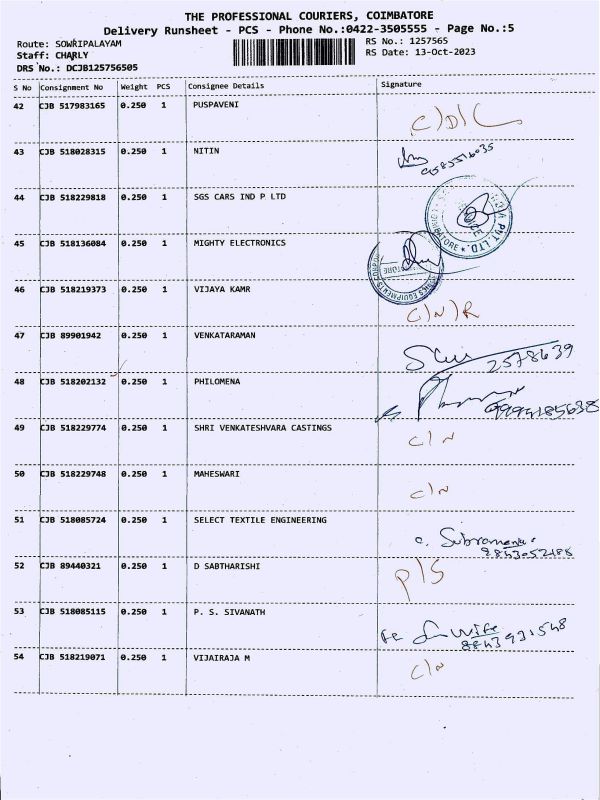 THE PROFESSIONAL COURIERS, COIMBATORE
Delivery Runsheet - PCS - Phone No.:0422-3505555 - Page No.:5
Route: SOWRIPALAYAM RS No.: 1257565
Staff: CHARLY RS Date: 13-Oct-2023
DRS No.: DCJB125756505
S No Consignment No Weight PCS Consignee Details Signature
42 CJB 517983165 0.250 1 PUSPAVENI C/D/L
43 CJB 518028315 0.250 1 NITIN
44 CJB 518229818 0.250 1 SGS CARS IND P LTD
45 CJB 518136084 0.250 1 MIGHTY ELECTRONICS
46 CJB 518219373 0.250 1 VIJAYA KAMR C/N/R
47 CJB 89901942 0.250 1 VENKATARAMAN 2578639
48 CJB 518202132 0.250 1 PHILOMENA
49 CJB 518229774 0.250 1 SHRI VENKATESHVARA CASTINGS C/N
50 CJB 518229748 0.250 1 MAHESWARI C/N
51 CJB 518085724 0.250 1 SELECT TEXTILE ENGINEERING
52 CJB 89440321 0.250 1 D SABTHARISHI P/S
53 CJB 518085115 0.250 1 P. S. SIVANATH Wife
54 CJB 518219071 0.250 1 VIJAIRAJA M C/N